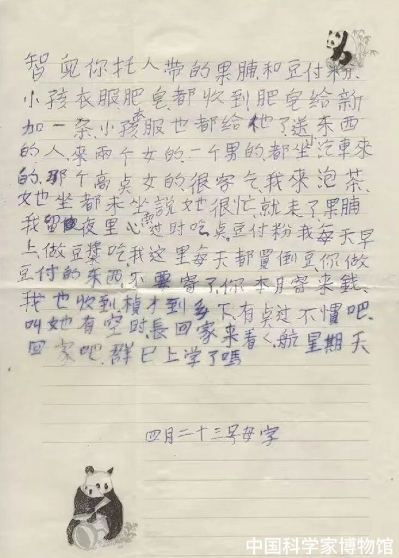 智兒你托人带的果脯和豆付粉
小孩衣服肥皂都收到肥皂给新
加一条小孩衣服也都给他了送东西
的人来两个女的一个男的都坐汽車來
的那个高点女的很客气我来泡茶
她也坐都未坐説她很忙就走了果脯
我留夜里心过时吃点豆付粉我每天早
上做豆漿吃我这里每天都買倒豆你做
豆付的东西不要寄了你本月寄来錢
我也收到楨才到乡下有点过不慣吧
叫她有空时長回家来看く航星期天
回家吧群已上学了嗎
四月二十三号母字
中国科学家博物馆